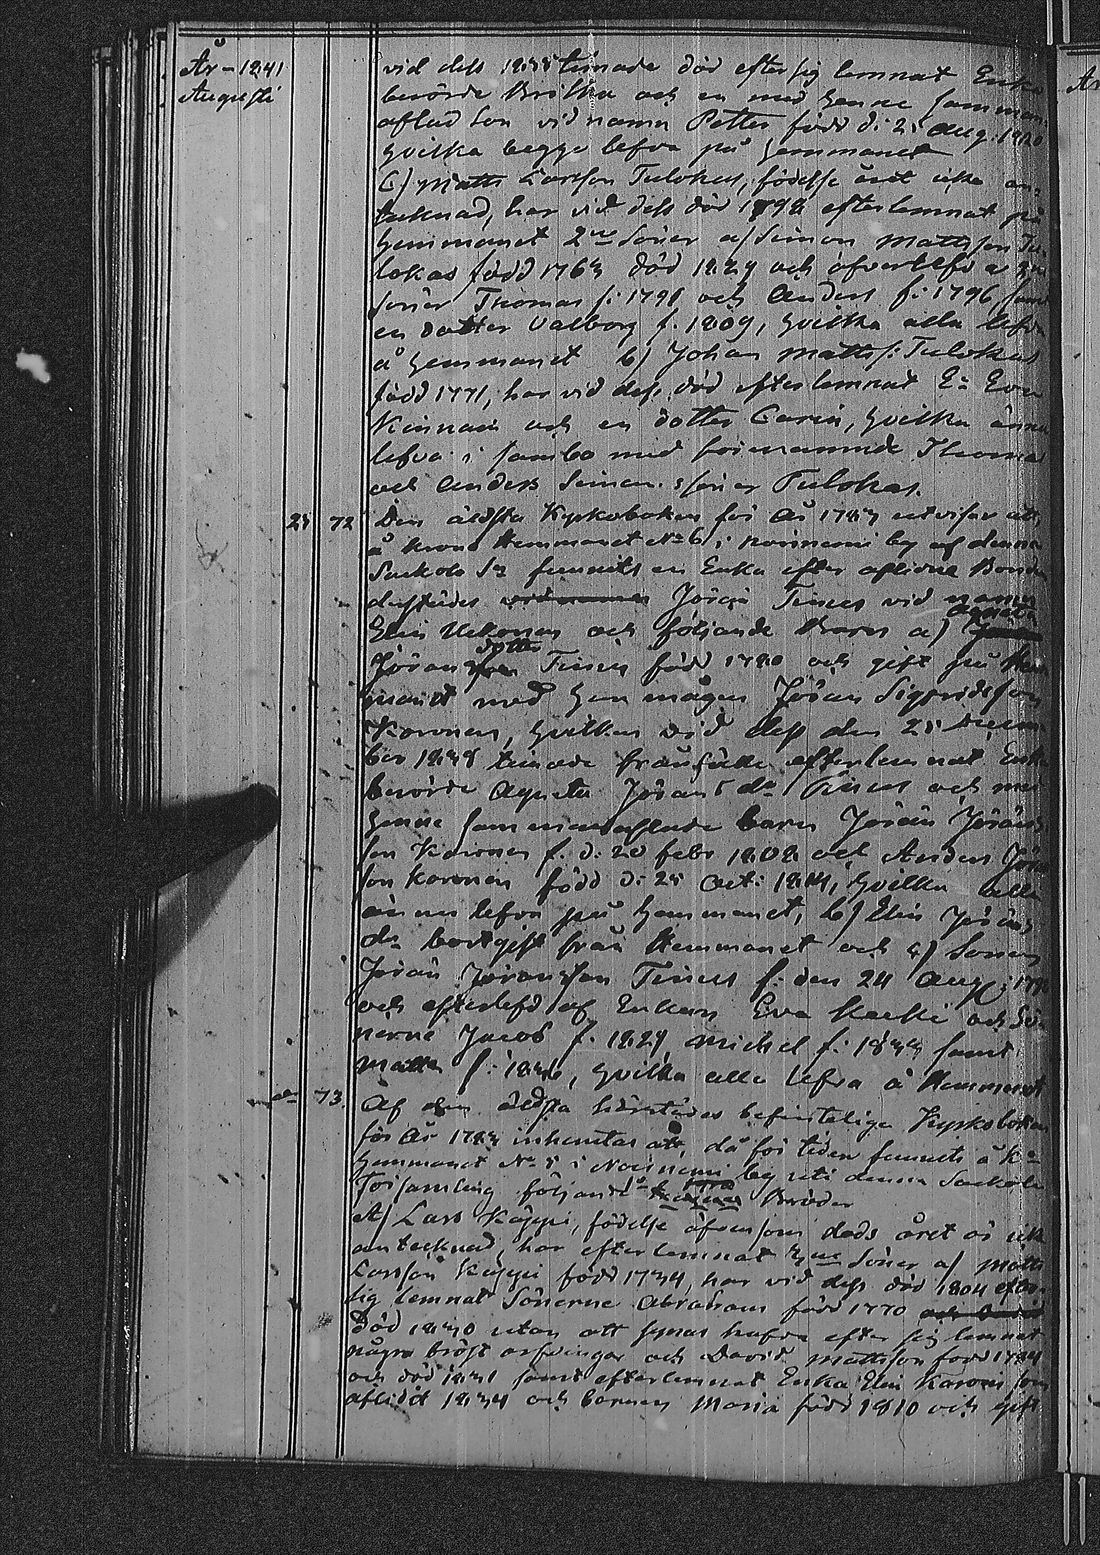 År 1841
Augusti
vid dess 1835 timade död efter sig lemnat Enka
berörde Britha och en med henne samman-
aflad Son vid namn Petter född d: 25 Aug: 1820
hvilka begge lefva på hemmanet
C) Matts Larsson Tulokas, födelse året icke an-
tecknad, har vid dess död 1798 efterlemnat på
hemmanet 2ne Söner a) Simon Mattsson Tu-
lokas född 1763 död 1829 och öfverlefd a
söner Thomas f: 1791 och Anders f: 1796, samt
en Dotter Valborg f. 1809, hvilka alla lefva
å hemmanet b) Johan Matts: Tulokas
född 1771, har vid dess död efterlemnat E: Eva
Kinnari och en dotter Carin, hvilka ännu
lefva i sambo med förenämnde Thomas
och Anders Simons söner Tulokas.
25 72 Den äldsta Kyrkoboken för år 1783 utvisar att
å Krono Hemmanet No 6 i Noisniemi by af denna
Sackola Sn funnits en Enka efter aflidne Bonden
derstädes Jöran Tinus vid namn
Elin Ukkonen och följande Barn a) Agneta
Jöransdotter Tinus född 1780 och gift på Hem-
manet med hem mågen Jöran Sigfridsson
Koronen, hvilken vid dess den 25 Decem-
ber 1838 timade frånfälle efterlemnat Enka
berörde Agneta Jörans dr Tinus och med
henne sammanaflade barn Jöran Jörans-
son Koronen f. d: 20 febr 1808 och Anders Jöra
son Koronen född d: 25 Oct: 1814, hvilka alla
ännu lefva på hemmanet, b) Elin Jörans
dr bortgift från Hemmanet och c) Sonen
Jöran Jöransson Tinus f: den 24 Aug:
och efterlefd af Enkan Eva Kaeki och Sö-
nerne Jacob f. 1829 Michel f: 1833 samt
Matts f: 1836, hvilka alla lefva å Hemmanet
d:o 73. Af den äldsta härstädes befintelige Kyrkoboken
för År 1783 inhemtas att, då för tiden funnits å Kro
hemmanet No 5 i Noisniemi by uti denna Sackola
Församling följande Bröder
A) Lars Käppi, födelse äfvensom döds året är icke
antecknad, har efterlemnat 3ne Söner a) Matts
Larsson Käppi född 1734, har vid dess död 1804 efter
sig lemnat Sönerne Abraham född 1770
Död 1830 utan att synas hafva efter sig lemnat
några bröst arfvingar och David Mattsson född 1784
och död 1831 samt efterlemnat Enka Elin Koronen som
aflidit 1834 och barnen Maria född 1810 och gift